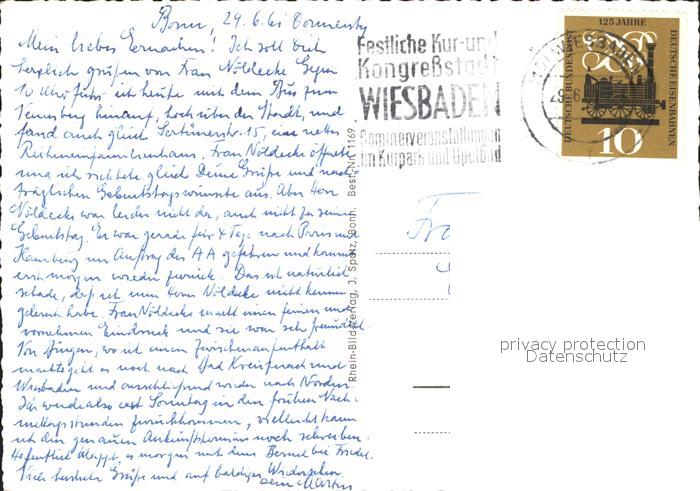 Bonn, 29.6.61 Donnerstg
Mein liebes! Ich soll Dich
herzlich grüßen von Frau Nöldecke. Gegen
10 Uhr fuhr ich heute mit dem Bus zum
Venusberg hinauf, hoch über der Stadt, und
fand auch gleich 15, ein nettes
Reiheneinfamilienhaus. Frau Nöldecke öffnete
und ich richtete gleich Deine Grüße und nach-
träglichen Geburtstagswünsche aus. Aber Herr
Nöldecke war leider nicht da, auch nicht zu seinem
Geburtstag. Er war gerade für 4 Tage nach Paris und
Hamburg im Auftrag des AA gefahren und kommt
erst morgen wieder zurück. Das ist natürlich
schade, daß ich nun Herrn Nöldecke nicht kennen
gelernt habe. Frau Nöldecke macht einen feinen und
vornehmen Eindruck und sie war sehr freundlich.
Von Bingen, wo ich einen Zwischenaufenthalt
machte geht es noch nach Bad Kreuznach und
Wiesbaden und anschließend wieder nach Norden.
Ich werde also erst Sonntag in den frühen Nach-
mittagsstunden zurückkommen, vielleicht kann
ich den genauen Ankunftstermin noch schreiben.
Hoffentlich klappt es morgen mit dem bei
Viele herzliche Grüße und auf baldiges Wiedersehen
Dein Martin
Festliche Kur-und
Kongreßstadt
WIESBADEN
Sommerveranstaltungen
im Kurpark und Opelbad
WIESBADEN
125 JAHRE
DEUTSCHE BUNDESPOST
DEUTSCHE EISENBAHNEN
10
Rhein-Bildverlag, J. Spatz, Bonn. Best.-Nr. 1169
Fra
privacy protection
Datenschutz